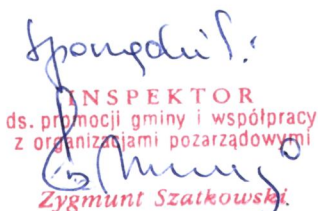 Sporządził:
INSPEKTOR
ds. promocji gminy i współpracy
z organizacjami pozarządowymi
Zygmunt Szatkowski